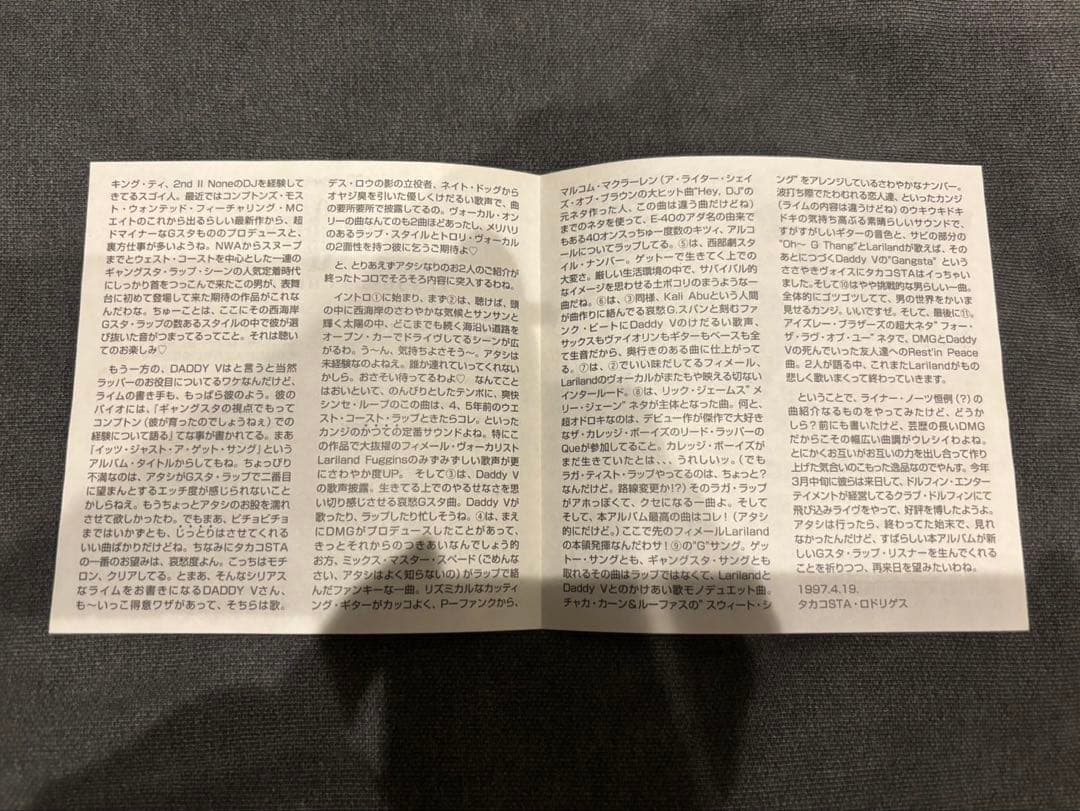 キング・ティ、2nd II NoneのDJを経験して
きてるスゴイ人。最近ではコンプトンズ・モス
ト・ウォンテッド・フィーチャリング・MC
エイトのこれから出るらしい最新作から、超
ドマイナーなGスタもののプロデュースと、
裏方仕事が多いようね。NWAからスヌープ
までとウェスト・コーストを中心とした一連の
ギャングスタ・ラップ・シーンの人気定着時代
にしっかり首をつっこんで来たこの男が、表舞
台に初めて登場して来た期待の作品がこれな
んだわな。ちゅーことは、ここにその西海岸
Gスタ・ラップの数あるスタイルの中で彼が選
び抜いた音がつまってるってこと。それは聴い
てのお楽しみ♡
もう一方の、DADDY Vはと言うと当然
ラッパーのお役目についてるワケなんだけど、
ライムの書き手も、もっぱら彼のよう。彼の
バイオには、「ギャングスタの視点でもって
コンプトン（彼が育ったのでしょうねぇ）での
経験について語る」てな事が書かれてる。まあ
「イッツ・ジャスト・ア・ゲット・サング」という
アルバム・タイトルからしてもね。ちょっぴり
不満なのは、アタシがGスタ・ラップで二番目
に望まんとするエッチ度が感じられないこと
かしらねえ。もうちょっとアタシのお股を濡れ
させて欲しかったわ。でもまあ、ビチョビチョ
まではいかずとも、じっとりはさせてくれる
いい曲ばかりだけどね。ちなみにタカコSTA
の一番のお望みは、哀愁度よん。こっちはモチ
ロン、クリアしてる。とまあ、そんなシリアス
なライムをお書きになるDADDY Vさん、
も〜いっこ得意ワザがあって、そちらは歌。
デス・ロウの影の立役者、ネイト・ドッグから
オヤジ臭を引いた優しくけだるい歌声で、曲
の要所要所で披露してるの。ヴォーカル・オン
リーの曲なんてのも2曲ほどあったし、メリハリ
のあるラップ・スタイルとトロリ・ヴォーカル
の2面性を持つ彼に乞うご期待よ♡
と、とりあえずアタシなりのお2人のご紹介が
終ったトコロでそろそろ内容に突入するわね。
イントロ①に始まり、まず②は、聴けば、頭
の中に西海岸のさわやかな気候とサンサンと
輝く太陽の中、どこまでも続く海沿い道路を
オープン・カーでドライヴしてるシーンが広
がるわ。う〜ん、気持ちよさそう〜。アタシは
未経験なのよねえ。誰か連れていってくれない
かしら。おさそい待ってるわよ♡ なんてこと
はおいといて、のんびりとしたテンポに、爽快
シンセ・ループのこの曲は、4、5年前のウエ
スト・コースト・ラップときたらコレ。といった
カンジのかつての定番サウンドよね。特にこ
の作品で大抜擢のフィメール・ヴォーカリスト
Lariland Fugginsのみずみずしい歌声が更
にさわやか度UP。 そして③は、Daddy V
の歌声披露。生きてる上でのやるせなさを思
い切り感じさせる哀愁Gスタ曲。Daddy Vが
歌ったり、ラップしたり忙しそうね。④は、まえ
にDMGがプロデュースしたことがあって、
きっとそれからのつきあいなんでしょう的
お方、ミックス・マスター・スペード（ごめんな
さい、アタシはよく知らないの）がラップで絡
んだファンキーな一曲。リズミカルなカッティ
ング・ギターがカッコよく、P−ファンクから、
マルコム・マクラーレン（ア・ライター・シェイ
ズ・オブ・ブラウンの大ヒット曲“Hey, DJ”の
元ネタ作った人、この曲は違う曲だけどね）
までのネタを使って、E-40のアダ名の由来で
もある40オンスっちゅー度数のキツィ、アルコ
ールについてラップしてる。⑤は、西部劇スタ
イル・ナンバー。ゲットーで生きてく上での
大変さ。厳しい生活環境の中で、サバイバル的
なイメージを思わせる土ボコリのまうような一
曲だね。⑥は、③同様、Kali Abuという人間
が曲作りに絡んでる哀愁G.スパンと刻むファ
ンク・ビートにDaddy Vのけだるい歌声、
サックスもヴァイオリンもギターもベースも全
て生音だから、奥行きのある曲に仕上がって
る。⑦は、②でいい味だしてるフィメール、
Larilandのヴォーカルがまたもや映える切ない
インタールード。⑧は、リック・ジェームス“メ
リー・ジェーン”ネタが主体となった曲。何と、
超オドロキなのは、デビュー作が傑作で大好き
なザ・カレッジ・ボーイズのリード・ラッパーの
Queが参加してること。カレッジ・ボーイズが
まだ生きていたとは、、、うれしいッ。（でも
ラガ・ティスト・ラップやってるのは、ちょっと？
なんだけど。路線変更か!?）そのラガ・ラップ
がアホっぽくて、クセになる一曲よ。そして
そして、本アルバム最高の曲はコレ！（アタシ
的にだけど。）ここで先のフィメールLariland
の本領発揮なんだわサ！⑨の“G”サング。ゲッ
トー・サングとも、ギャングスタ・サングとも
取れるその曲はラップではなくて、Larilandと
Daddy Vとのかけあい歌モノデュエット曲。
チャカ・カーン＆ルーファスの“スウィート・シ
ング”をアレンジしているさわやかなナンバー。
波打ち際でたわむれる恋人達、といったカンジ
（ライムの内容は違うけどね）のウキウキドキ
ドキの気持ち高ぶる素晴らしいサウンドで、
すがすがしいギターの音色と、サビの部分の
“Oh〜 G Thang”とLarilandが歌えば、その
あとにつづくDaddy Vの“Gangsta”という
ささやきヴォイスにタカコSTAはイっちゃい
ました。そして⑩はやや挑戦的な男らしい一曲。
全体的にゴツゴツしてて、男の世界をかいま
見せるカンジ。いいですぜ。そして、最後に⑪。
アイズレー・ブラザーズの超大ネタ“フォー・
ザ・ラヴ・オブ・ユー”ネタで、DMGとDaddy
Vの死んでいった友人達へのRest'in Peace
曲。2人が語る中、これまたLarilandがもの
悲しく歌いまくって終わっていきます。
ということで、ライナー・ノーツ恒例（？）の
曲紹介なるものをやってみたけど、どうか
しら？前にも書いたけど、芸歴の長いDMG
だからこその幅広い曲調がウレシイわよね。
とにかくお互いがお互いの力を出し合って作り
上げた気合いのこもった逸品なのでやんす。今年
3月中旬に彼らは来日して、ドルフィン・エンター
テイメントが経営してるクラブ・ドルフィンにて
飛び込みライヴをやって、好評を博したようよ。
アタシは行ったら、終わってた始末で、見れ
なかったんだけど、すばらしい本アルバムが新
しいGスタ・ラップ・リスナーを生んでくれる
ことを祈りつつ、再来日を望みたいわね。
1997.4.19.
タカコSTA・ロドリゲス